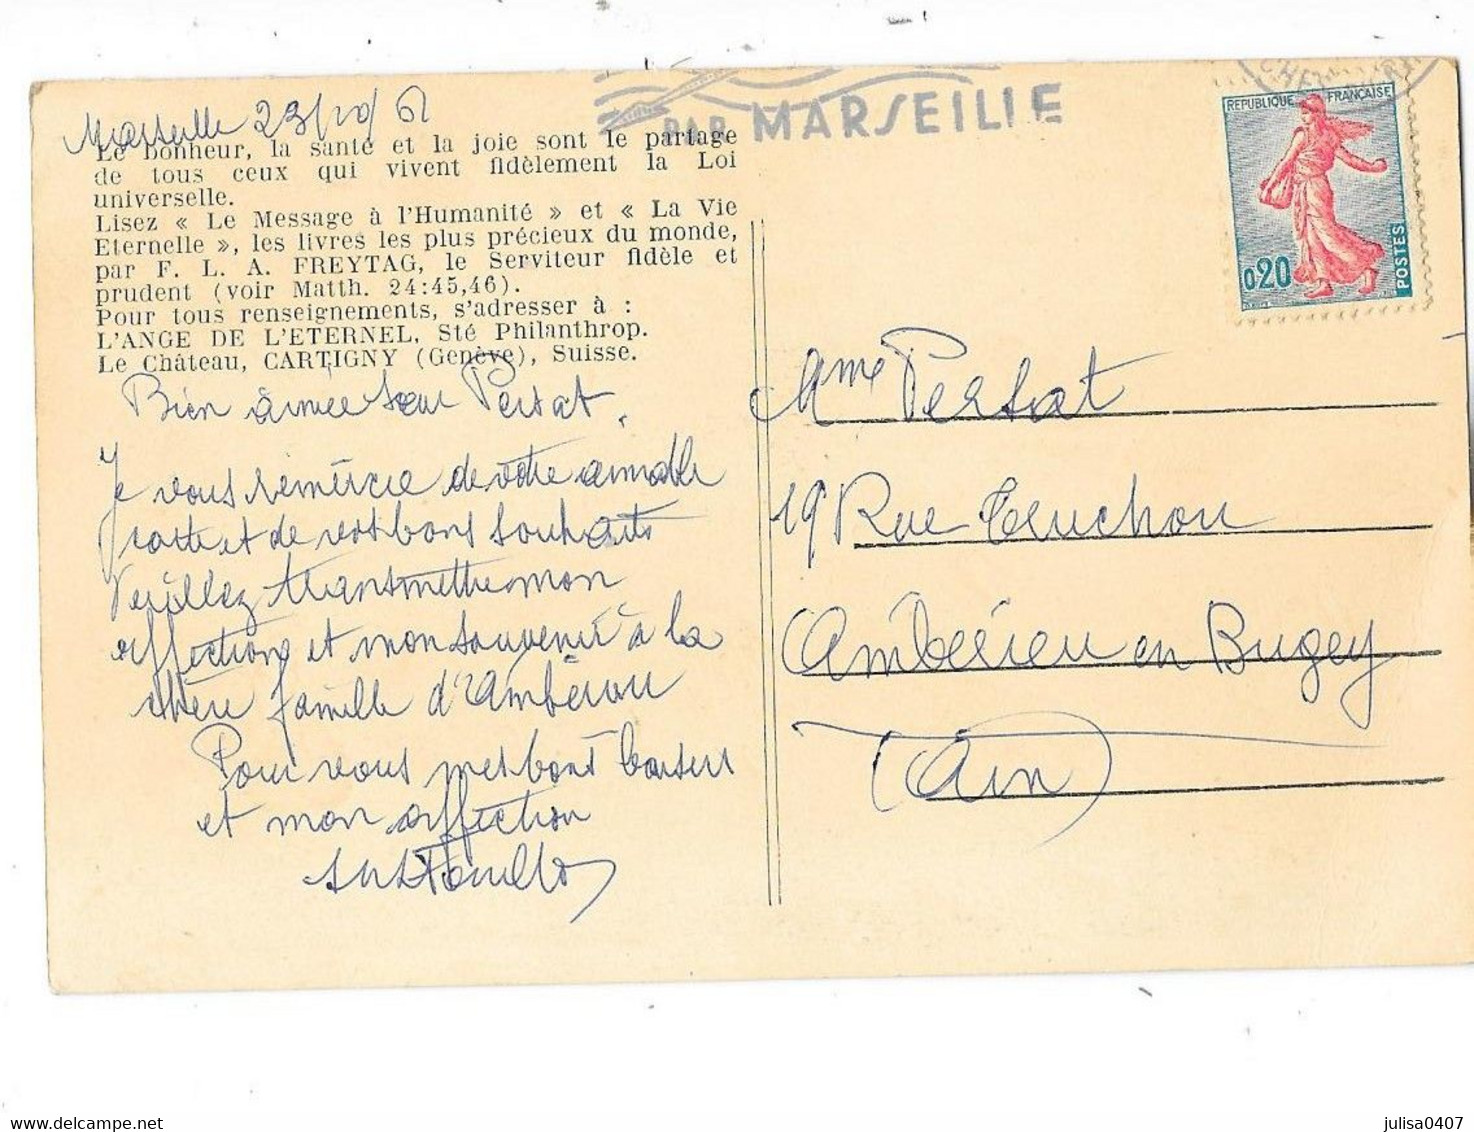 Marseille 23/10/61
Le bonheur, la santé et la joie sont le partage
de tous ceux qui vivent fidèlement la Loi
universelle.
Lisez « Le Message à l'Humanité » et « La Vie
Eternelle », les livres les plus précieux du monde,
par F. L. A. FREYTAG, le Serviteur fidèle et
prudent (voir Matth. 24:45,46).
Pour tous renseignements, s'adresser à :
L'ANGE DE L'ETERNEL, Sté Philanthrop.
Le Château, CARTIGNY (Genève), Suisse.
Bien aimée sœur Persat.
Je vous remercie de votre aimable
carte et de vos bons souhaits
Veuillez transmettre mon
affection et mon souvenir à la
chère famille d'
Pour vous mes bons baisers
et mon affection
PAR MARSEILLE
REPUBLIQUE FRANÇAISE
0,20
POSTES
Mme Persat
19 Rue
Ambérieu en Bugey
(Ain)
julisa0407